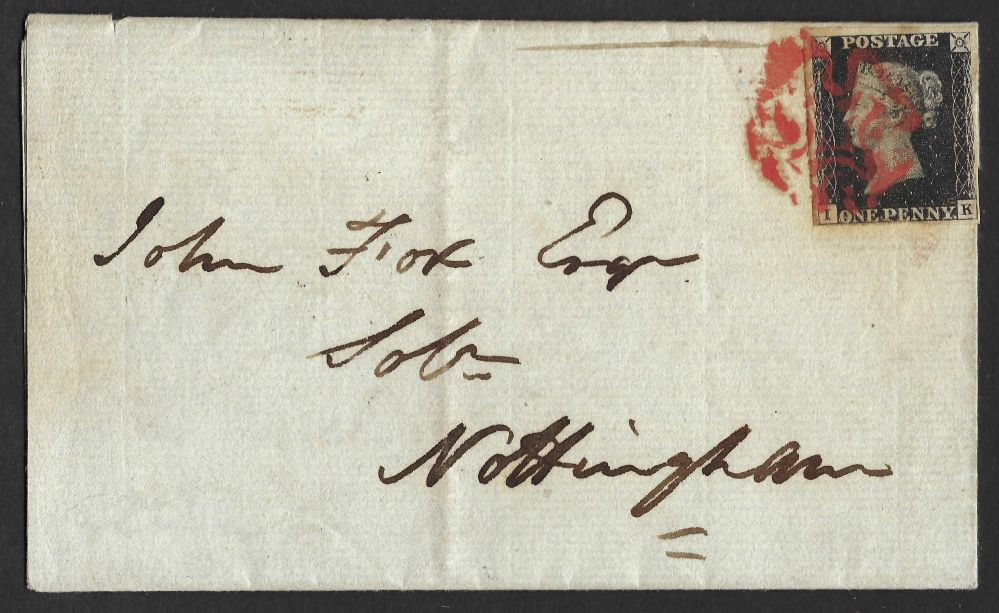 POSTAGE
I ONE PENNY. K
John Fox Esqr
Solr
Nottingham